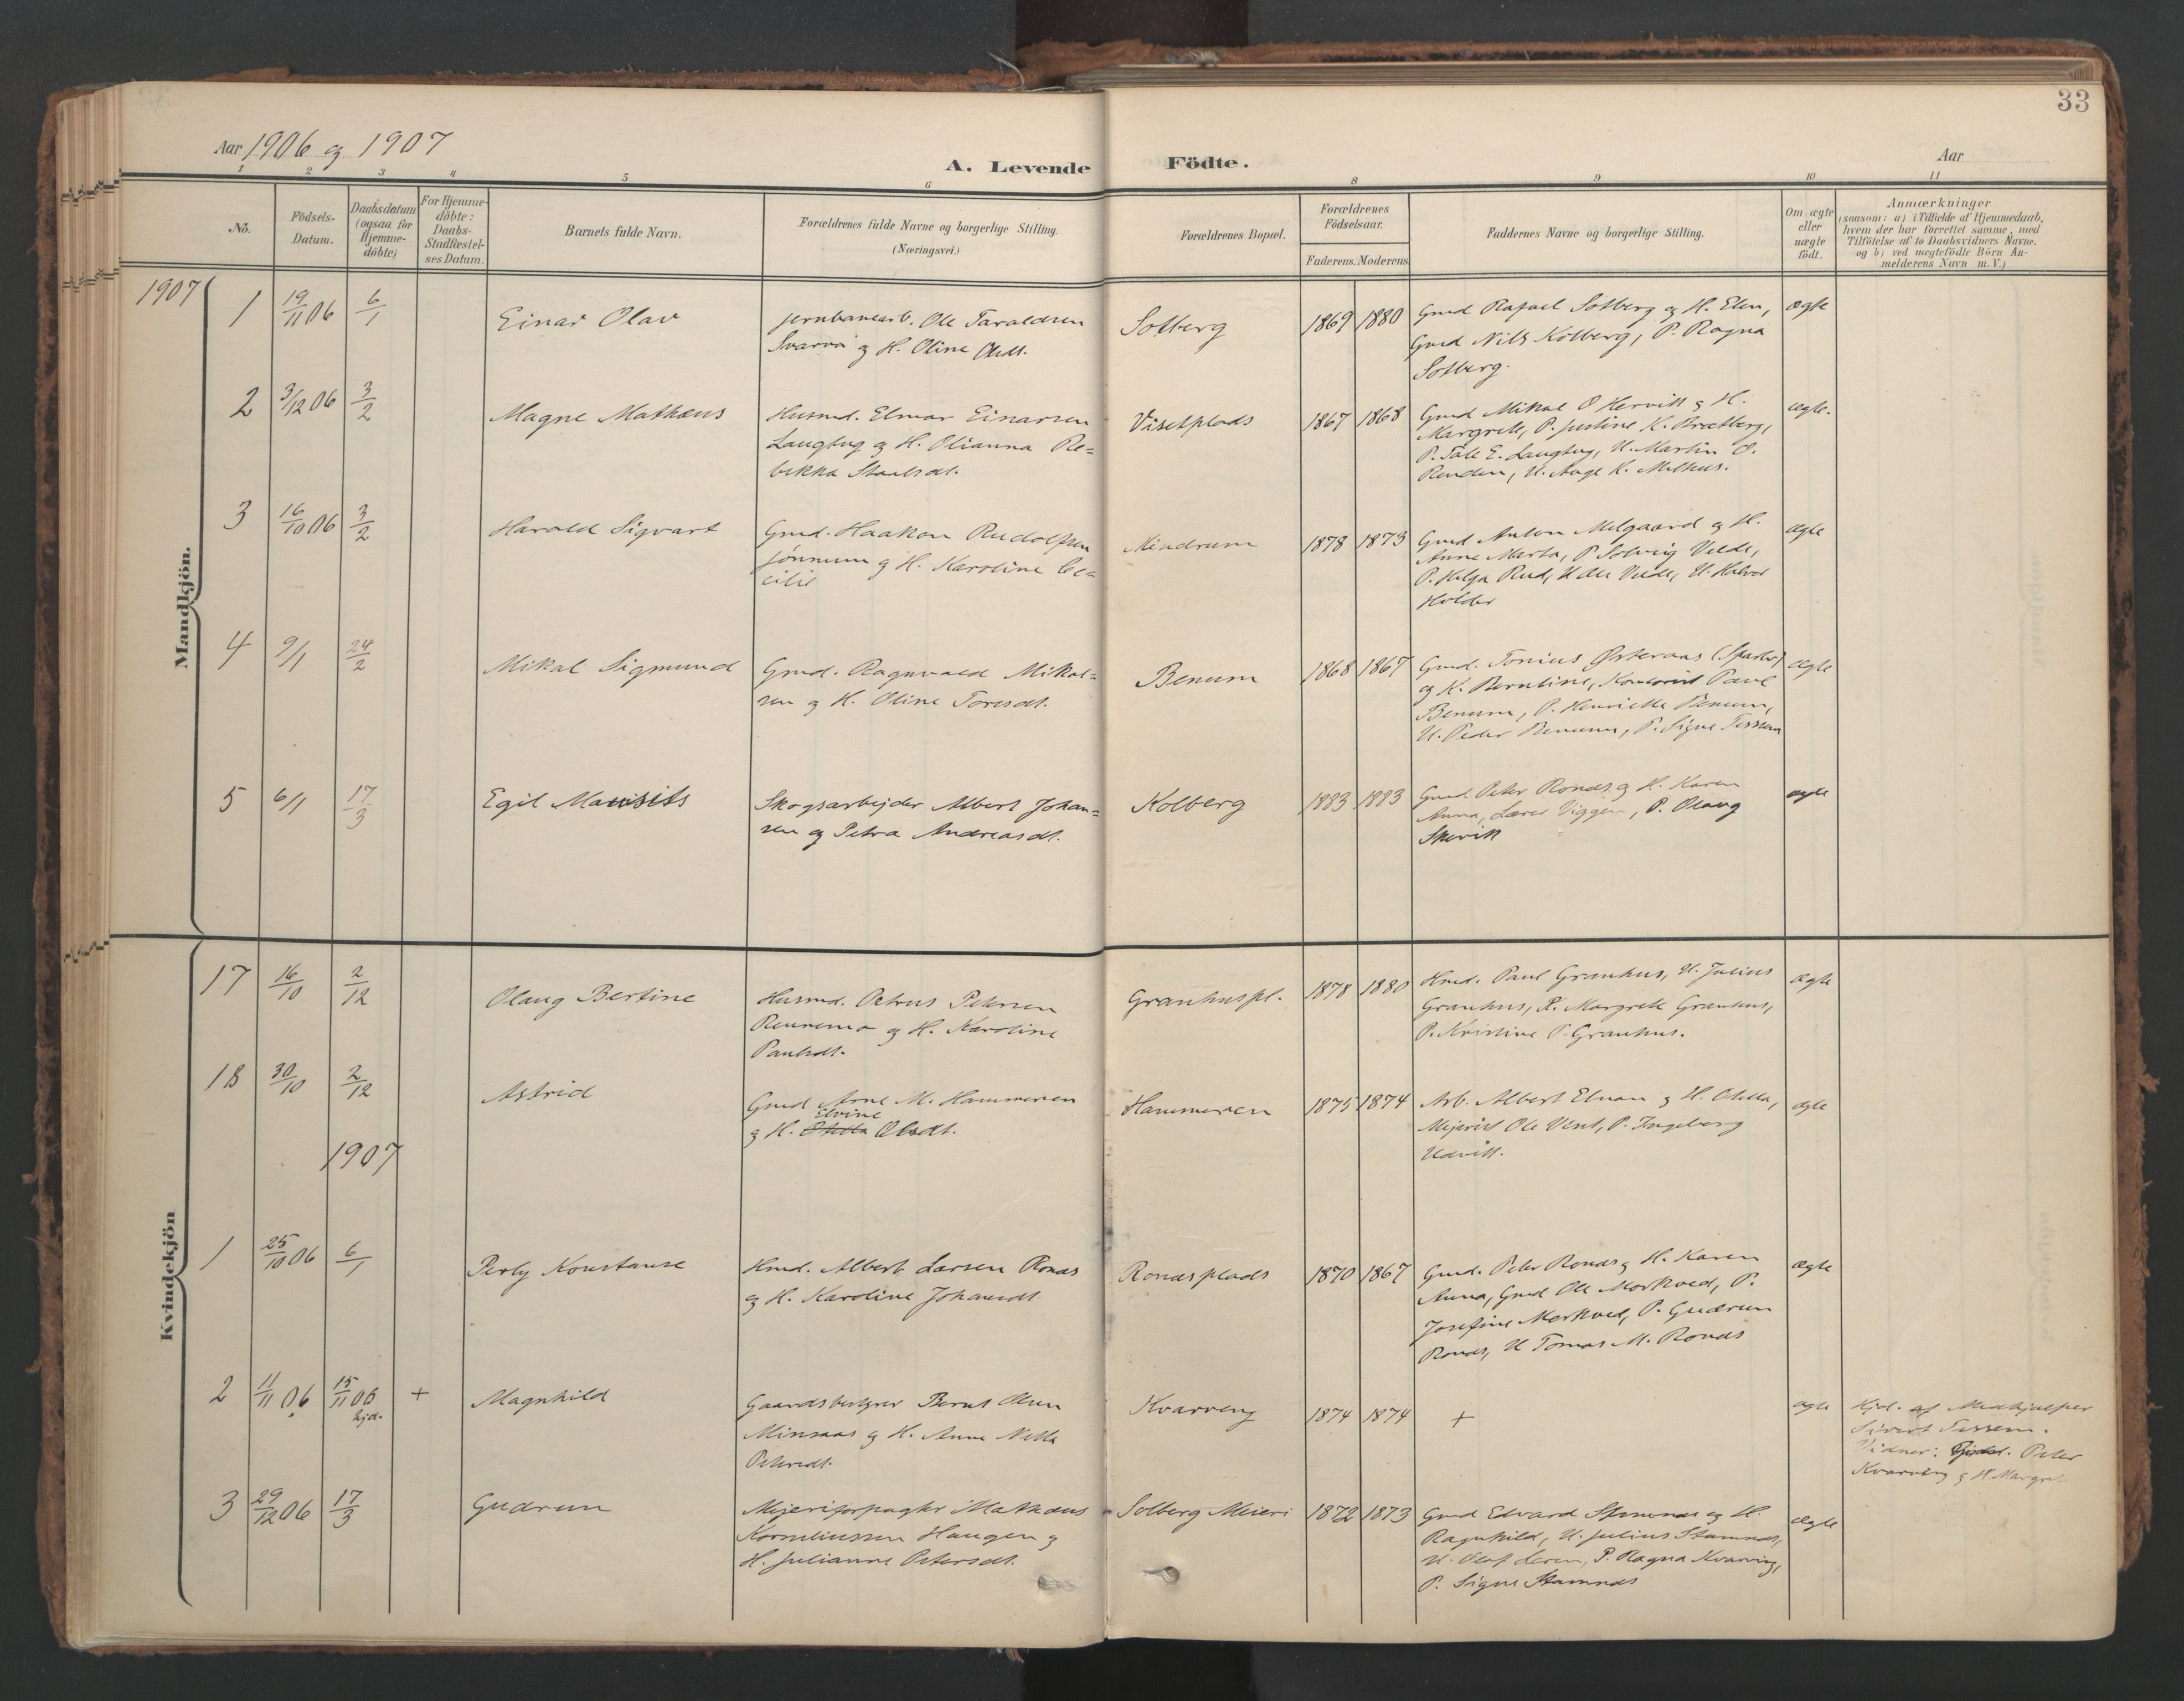 33
Aar 1906 og 1907
A. Levende Födte.
Aar
1 2 3 4 5 6 8 9 10 11
No.
Födsels-Datum.
Daabsdatum (ogsaa for Hjemme-döbte)
For Hjemme-döbte: Daabs-Stadfæstel-ses Datum.
Barnets fulde Navn.
Forældrenes fulde Navne og borgerlige Stilling.
(Næringsvei.)
Forældrenes Bopæl.
Forældrenes Födselsaar.
Faderens. Moderens
Faddernes Navne og borgerlige Stilling.
Om ægte eller uægte födt.
Anmærkninger
(saasom: a) i Tilfælde af Hjemmedaab,
hvem der har forrettet samme, med
Tilföielse af to Daabsvidners Navne.
og b) ved uægtefödte Börn An-
melderens Navn m. V.)
Mandkjön.
1907
1 19/11 06 6/1 Einar Olav
Jernbanearb. Ole Taraldsen
Svarva og H. Oline Olsdt.
Solberg 1869 1880
Gmd Rafael Solberg og H. Elen,
Gmd Nils Kolberg, P. Ragna
Solberg.
ægte
2 3/12 06 3/2 Magne Mathæus
Husmd. Elmar Einarsen
Langtug og H. Olianna Re=
bekka
Visetplads 1867 1868
Gmd Mikal O Hervik og H.
Margrete, P. Justine K. Bratberg,
P. Tale E. Langtug, U. Martin O.
Renden, U. Aage K. Melhus.
ægte.
3 16/10 06 3/2 Harald Sigvart
Gmd. Haakon Rudolfsen
og H. Karoline Ce=
cilie
Mindrum 1878 1873
Gmd Anton Melgaard og H.
Anne Marta, P Solveig Velde,
P. Helga Rud, U Ole Velde, U. Halvor
Holder
ægte
4 9/1 24/2 Mikal Sigmund
Gmd. Ragnvald Mikal=
sen og H. Oline Toresdt.
Benum 1868 1867
Gmd. Tonius Østeraas (Sparbu)
og K. Berntine, Paul
Benum, P. Henriette Benum,
U. Peder Benum, P. Signe Tessem
ægte
5 6/11 17/3 Egil
Skogsarbejder Albert Johan=
sen og Petra Andreasdt.
Kolberg 1883 1883
Gmd. Peter Ronæs og H. Karen
Anna, Lærer Viggen, P. Olaug
Skevik
ægte
Kvindekjön
17 16/10 2/12 Olaug Bertine
Husmd. Petrus Petersen
Renrema og H. Karoline
Paulsdt.
Granhuspl. 1878 1880
Hmd. Paul Granhus, U. Julius
Granhus, P. Margrete Granhus,
P. Kristine P Granhus.
ægte
18 30/10 2/12 Astrid
Gmd Arne M. Hammeren
Elvine
og H. Otelia Olsdt.
Hammeren 1875 1874
Arb. Albert Elnan og H. Otelia,
Mejerist Ole Vist, P. Ingeborg
Udvik.
ægte
1907
1 25/10 06 6/1 Perly Konstanse
Hmd. Albert Larsen Ronæs
og H. Karoline Johansdt
Ronæsplads 1870 1867
Gmd. Peter Ronæs og H. Karen
Anna, Gmd Ole Morkved, P.
Josefine Morkved, P. Gudrun
Ronæs, U Tomas M. Ronæs
ægte
2 11/11 06 15/11 06 + Magnhild
hjd.
Gaardsbestyrer Bernt Olsen
Minsaas og H. Anne Nella
Petersdt.
Kvarveng 1874 1874 + ægte
Hjd. af Medhjælper
Sivert Tessem.
Vidner: Peter
Kvarving og H Margret
3 29/12 06 17/3 Gudrun
Mejeriforpagter Mathæus
Korneliussen Haugen og
H. Julianne Petersdt.
Solberg Meieri 1872 1873
Gmd Edvard Stamnes og H.
Ragnhild, U. Julius Stamnes,
U. Olaf Leren, P. Ragna Kvarving,
P. Signe Stamnes
ægte